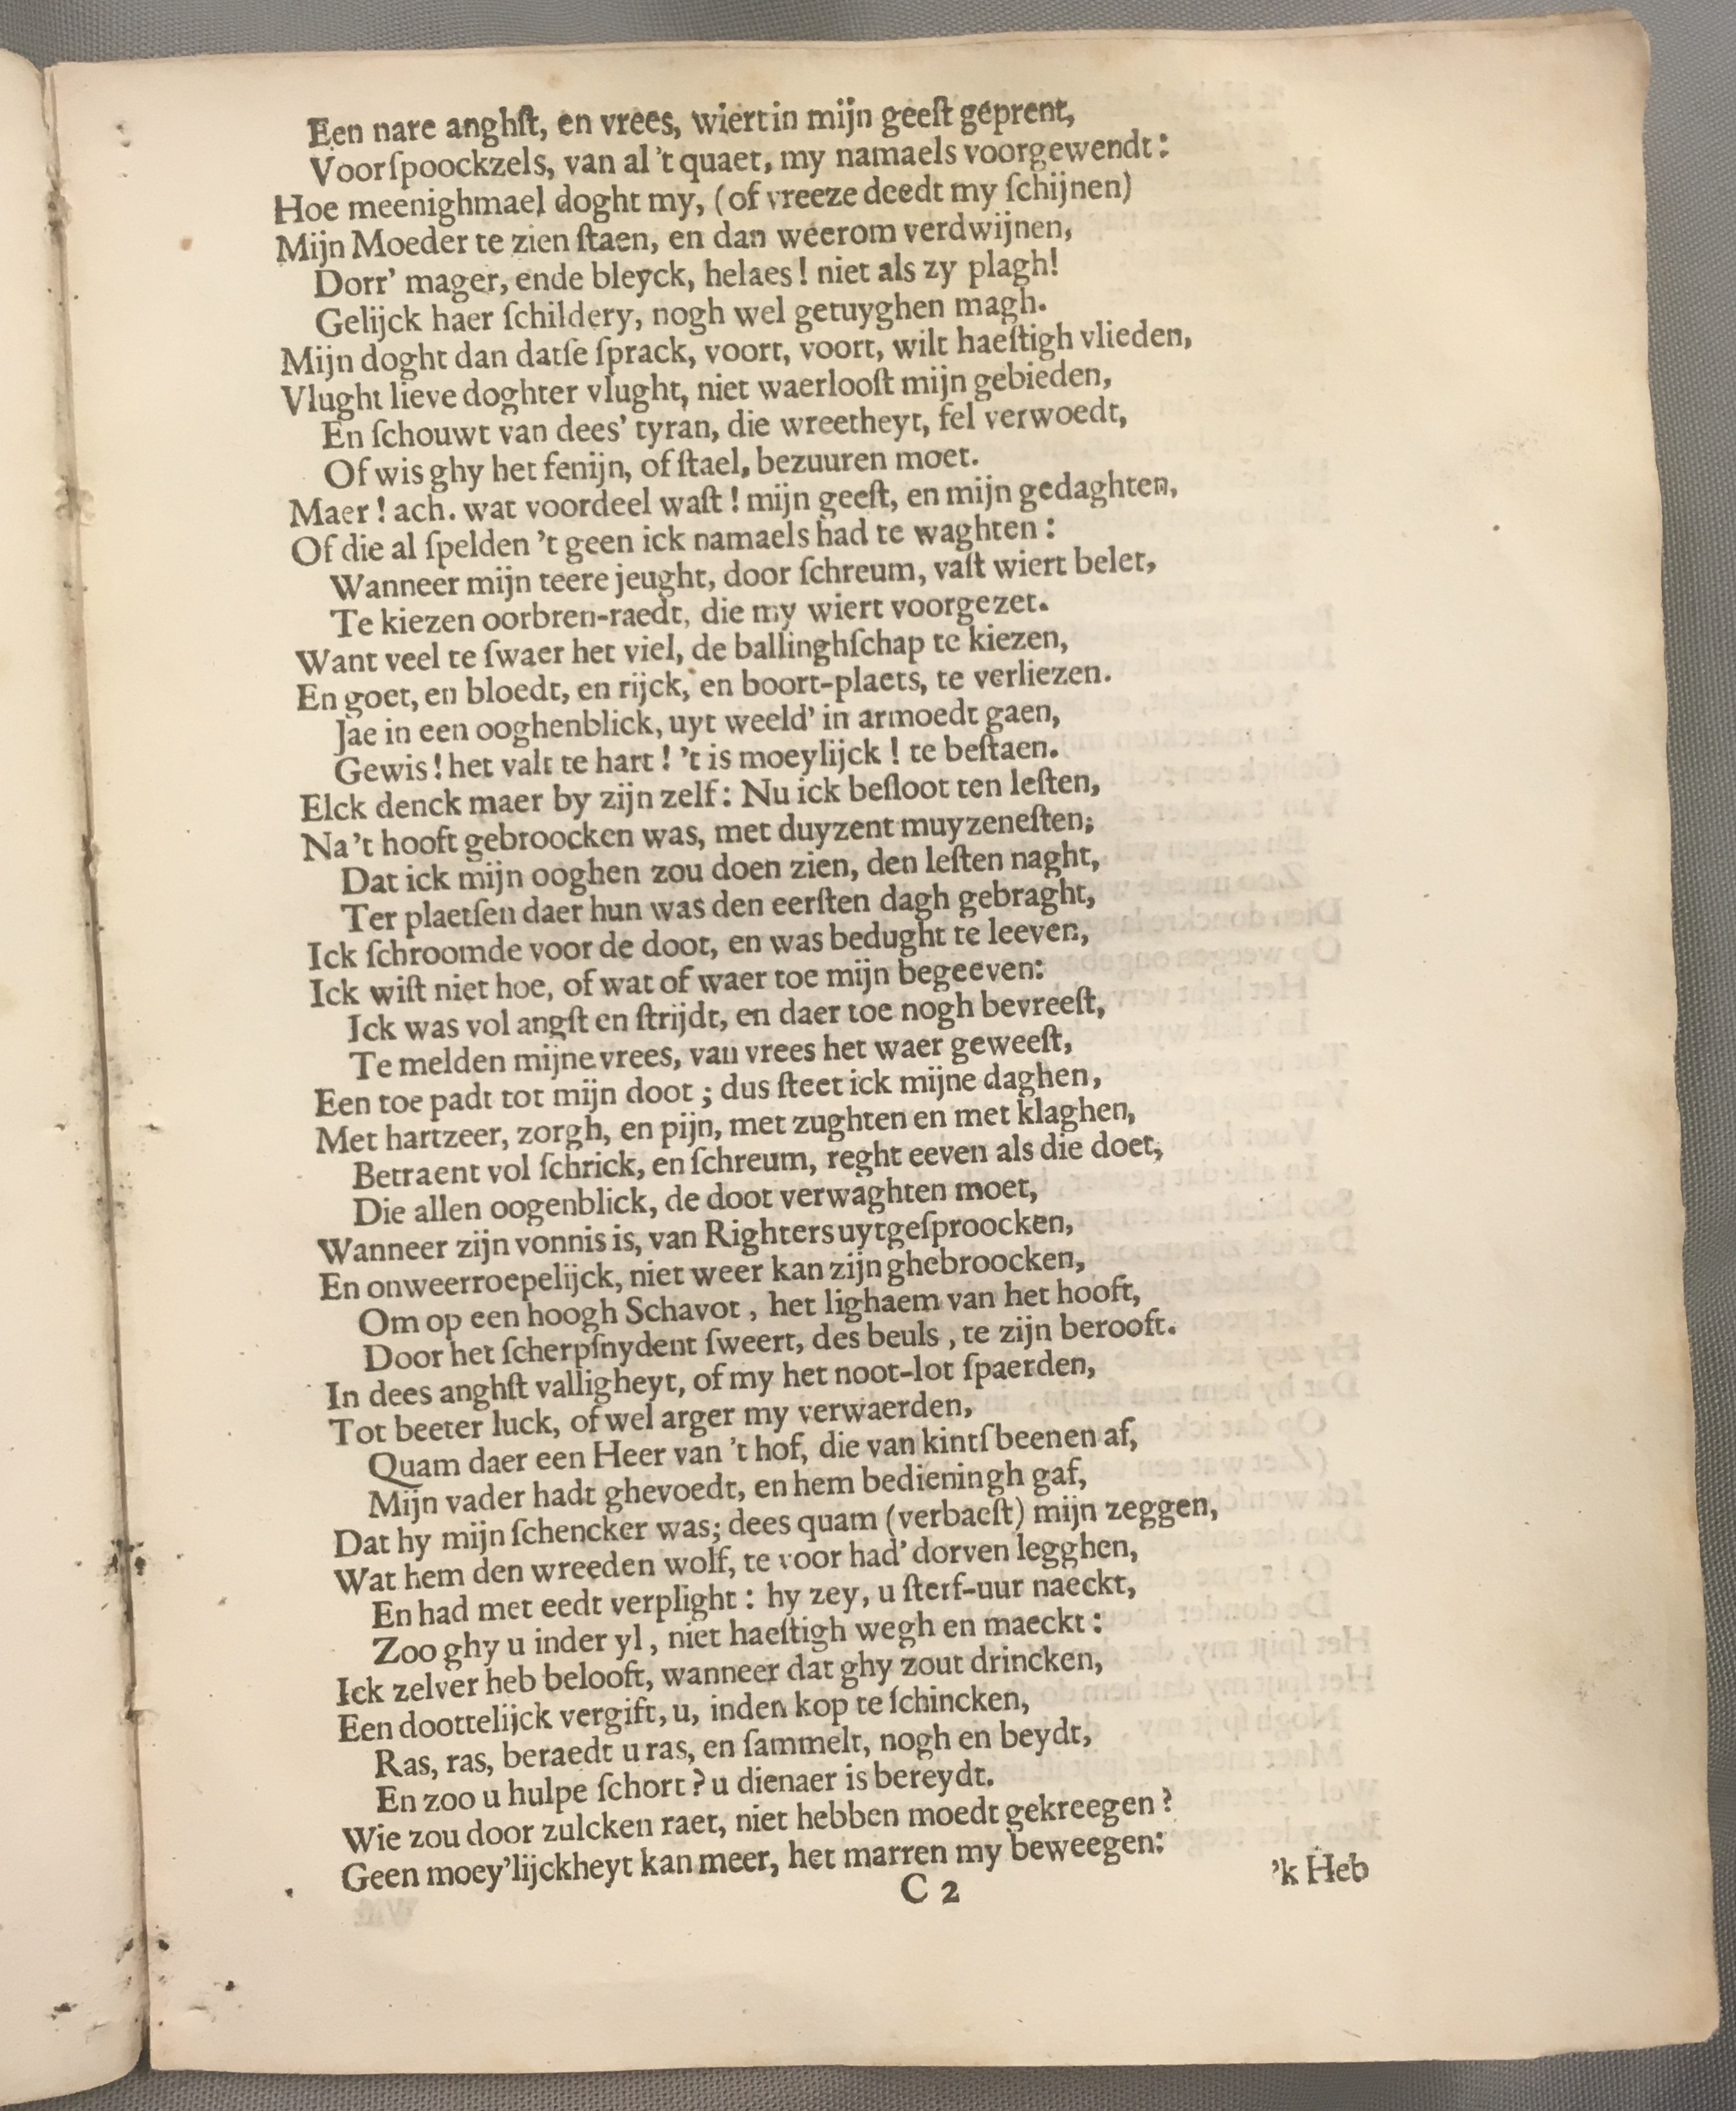 Een nare anghſt, en vrees, wiert in mijn geeſt geprent,
Voorſpoockzels, van al 't quaet, my namaels voorgewendt:
Hoe meenighmael doght my, (of vreeze deedt my ſchijnen)
Mijn Moeder te zien ſtaen, en dan weerom verdwijnen,
Dorr' mager, ende bleyck, helaes! niet als zy plagh!
Gelijck haer ſchildery, nogh wel getuyghen magh.
Mijn doght dan datſe ſprack, voort, voort, wilt haeſtigh vlieden,
Vlught lieve doghter vlught, niet waerlooſt mijn gebieden,
En ſchouwt van dees' tyran, die wreetheyt, fel verwoedt,
Of wis ghy het fenijn, of ſtael, bezuuren moet.
Maer! ach. wat voordeel waſt! mijn geeſt, en mijn gedaghten,
Of die al ſpelden 't geen ick namaels had te waghten:
Wanneer mijn teere jeught, door ſchreum, vaſt wiert belet,
Te kiezen oorbren-raedt, die my wiert voorgezet.
Want veel te ſwaer het viel, de ballinghſchap te kiezen,
En goet, en bloedt, en rijck, en boort-plaets, te verliezen.
Jae in een ooghenblick, uyt weeld' in armoedt gaen,
Gewis! het valt te hart! 't is moeylijck! te beſtaen.
Elck denck maer by zijn zelf: Nu ick beſloot ten leſten,
Na 't hooft gebroocken was, met duyzent muyzeneſten;
Dat ick mijn ooghen zou doen zien, den leſten naght,
Ter plaetſen daer hun was den eerſten dagh gebraght,
Ick ſchroomde voor de doot, en was bedught te leeven,
Ick wiſt niet hoe, of wat of waer toe mijn begeeven:
Ick was vol angſt en ſtrijdt, en daer toe nogh bevreeſt,
Te melden mijne vrees, van vrees het waer geweeſt,
Een toe padt tot mijn doot; dus ſteet ick mijne daghen,
Met hartzeer, zorgh, en pijn, met zughten en met klaghen,
Betraent vol ſchrick, en ſchreum, reght eeven als die doet,
Die allen oogenblick, de doot verwaghten moet,
Wanneer zijn vonnis is, van Righters uytgeſproocken,
En onweerroepelijck, niet weer kan zijn ghebroocken,
Om op een hoogh Schavot, het lighaem van het hooft,
Door het ſcherpſnydent ſweert, des beuls, te zijn berooft.
In dees anghſt valligheyt, of my het noot-lot ſpaerden,
Tot beeter luck, of wel arger my verwaerden,
Quam daer een Heer van 't hof, die van kintſbeenen af,
Mijn vader hadt ghevoedt, en hem bedieningh gaf,
Dat hy mijn ſchencker was; dees quam (verbaeſt) mijn zeggen,
Wat hem den wreeden wolf, te voor had' dorven legghen,
En had met eedt verplight: hy zey, u ſterf-uur naeckt,
Zoo ghy u inder yl, niet haeſtigh wegh en maeckt:
Ick zelver heb belooft, wanneer dat ghy zout drincken,
Een doottelijck vergift, u, inden kop te ſchincken,
Ras, ras, beraedt u ras, en ſammelt, nogh en beydt,
En zoo u hulpe ſchort? u dienaer is bereydt.
Wie zou door zulcken raet, niet hebben moedt gekreegen?
Geen moey'lijckheyt kan meer, het marren my beweegen:
C 2
'k Heb